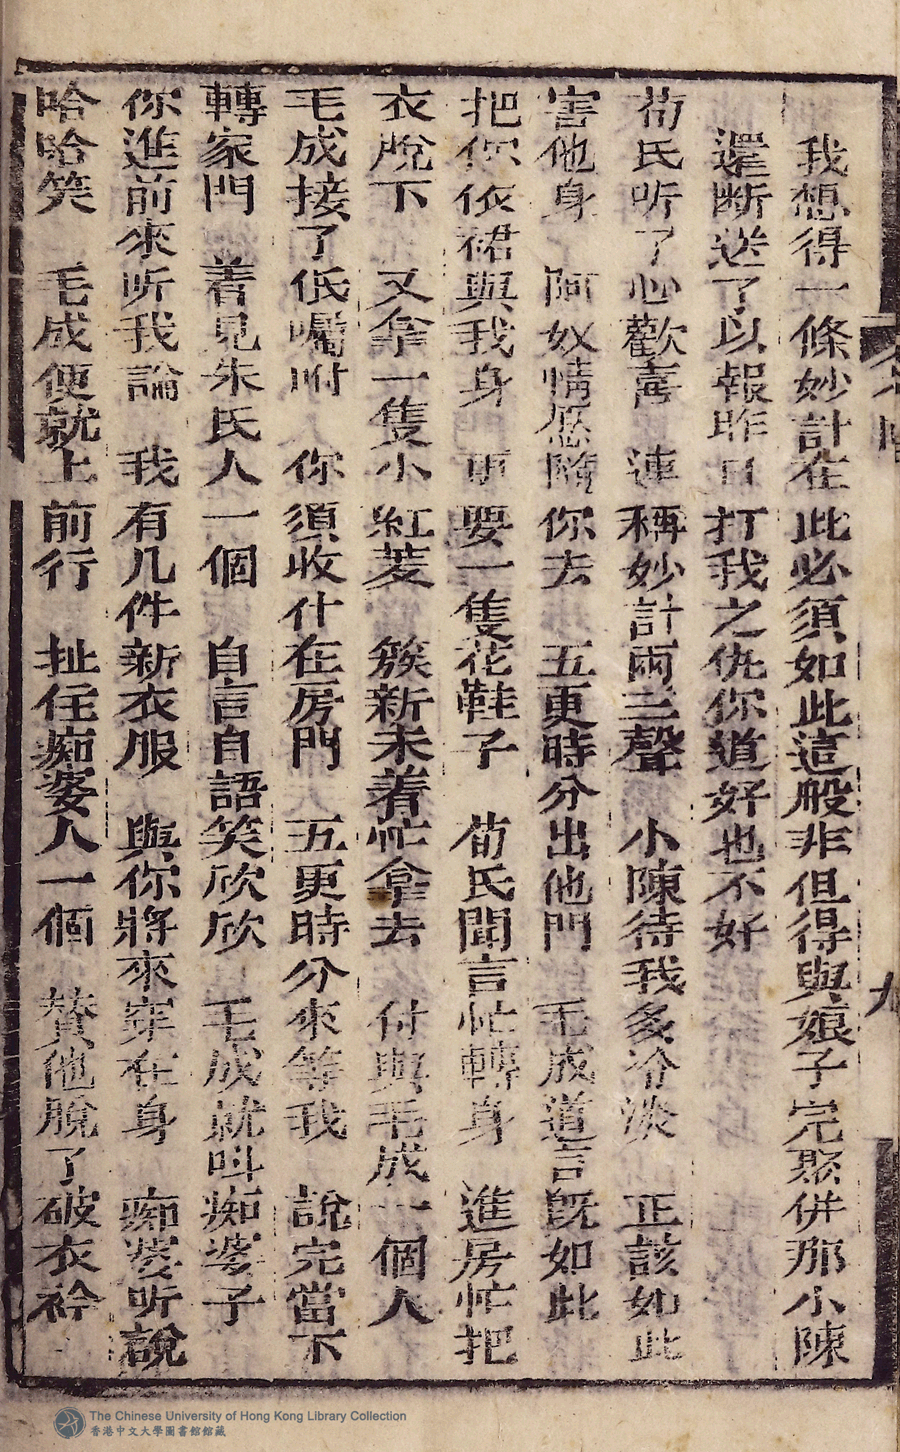 我想得一條妙計在此必須如此這般非但得與娘子完聚併那小陳
還斷送了以報昨日打我之仇你道好也不好
荀氏听了心歡喜 連稱妙計兩三聲 小陳待我多冷淡 正該如此
害他身 阿奴情愿隨你去 五更時分出他門 毛成道言既如此
把你依裙與我身 更要一隻花鞋子 荀氏聞言忙轉身 進房忙把
衣脫下 又拿一隻小紅菱 簇新未着忙拿去 付與毛成一個人
毛成接了低囑咐 你須收什在房門 五更時分來等我 說完當下
轉家門 着見朱氏人一個 自言自語笑欣欣 毛成就叫痴婆子
你進前來听我論 我有几件新衣服 與你將來穿在身 痴婆听說
哈哈笑 毛成便就上前行 扯住痴婆人一個 替他脫了破衣衿
九
The Chinese University of Hong Kong Library Collection
香港中文大學圖書館館藏